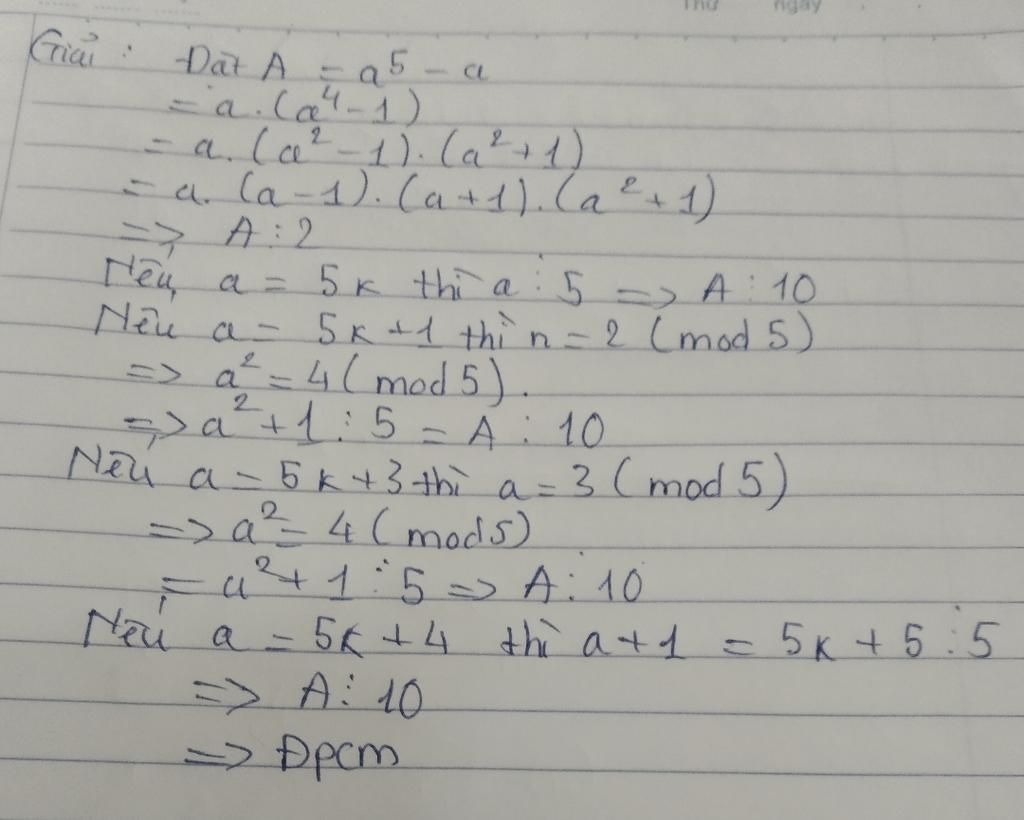 Thứ ngày
Giải : Đặt A = a⁵ - a
= a.(a⁴-1)
= a.(a²-1).(a²+1)
= a.(a-1).(a+1).(a²+1)
=> A ⋮ 2
Nếu a = 5k thì a ⋮ 5 => A ⋮ 10
Nếu a = 5k+1 thì n = 2 (mod 5)
=> a² = 4 (mod 5).
=> a²+1 ⋮ 5 = A ⋮ 10
Nếu a = 5k+3 thì a = 3 (mod 5)
=> a² = 4 (mod 5)
= a²+1 ⋮ 5 => A ⋮ 10
Nếu a = 5k+4 thì a+1 = 5k+5 ⋮ 5
=> A ⋮ 10
=> Đpcm